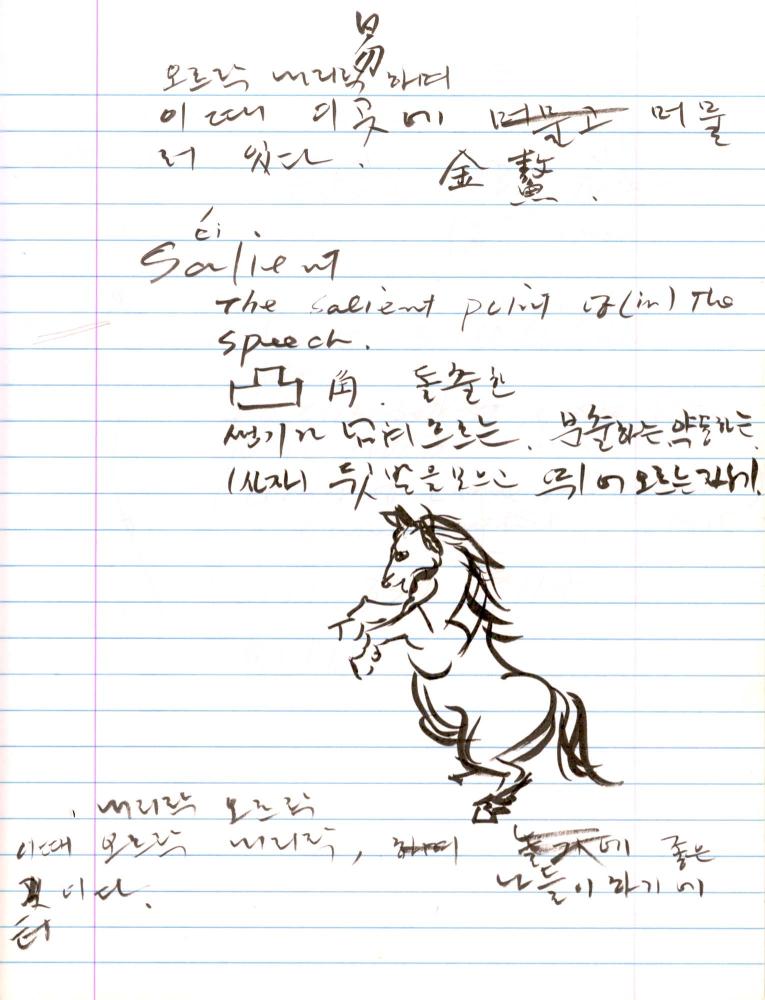 易
오르락 내리락 하며
이 때 이곳에 머물고 머물
러 있다.
金鰲.
éi.
Salient
The salient point of (in) The
speech.
凸角. 돌출한
넘쳐 오르는, 분출하는, 약동하는.
(사자) 뒷발을 모으고 뛰어 오르는 자세.
내리락 오르락
이때 오르락 내리락, 하며 놀기에 좋은
나들이 하기에
곳이다.
터